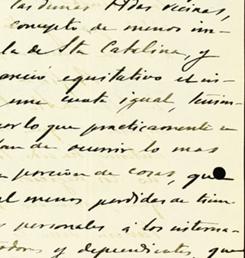 las demas Hdas vicinas,
concepto de menos im-
la de Sta Catelina, y
equitativo el in-
una cuota igual,
por lo que practicamente
de ocurrir lo mas
porcion de cosas, que
el menos perdidas de tiem-
s personales i los interna-
adores y dependientes, que